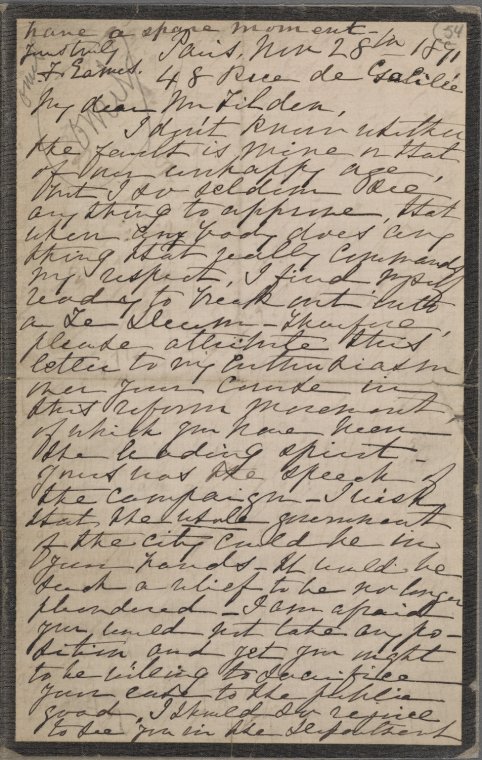 have a spare moment -
Yours truly
F. Eames.
54
Paris, Nov 28th 1871
48 Rue de Galilée
My dear Mr Tilden,
I don't know whether
the fault is mine or that
of my unhappy age,
but I so seldom see
any thing to approve, that
when any body does any
thing that really commands
my respect, I find myself
ready to break out into
a Te Deum - therefore,
please attribute this
letter to my enthusiasm
over your course in
this reform movement,
of which you have been
the leading spirit -
yours was the speech of
the campaign - I wish
that the whole government
of the city could be in
your hands - It would be
such a relief to be no longer
plundered - I am afraid
you would not take any po-
sition and yet you ought
to be willing to sacrifice
your ease to the public
good. I should so rejoice
to see you in the Department